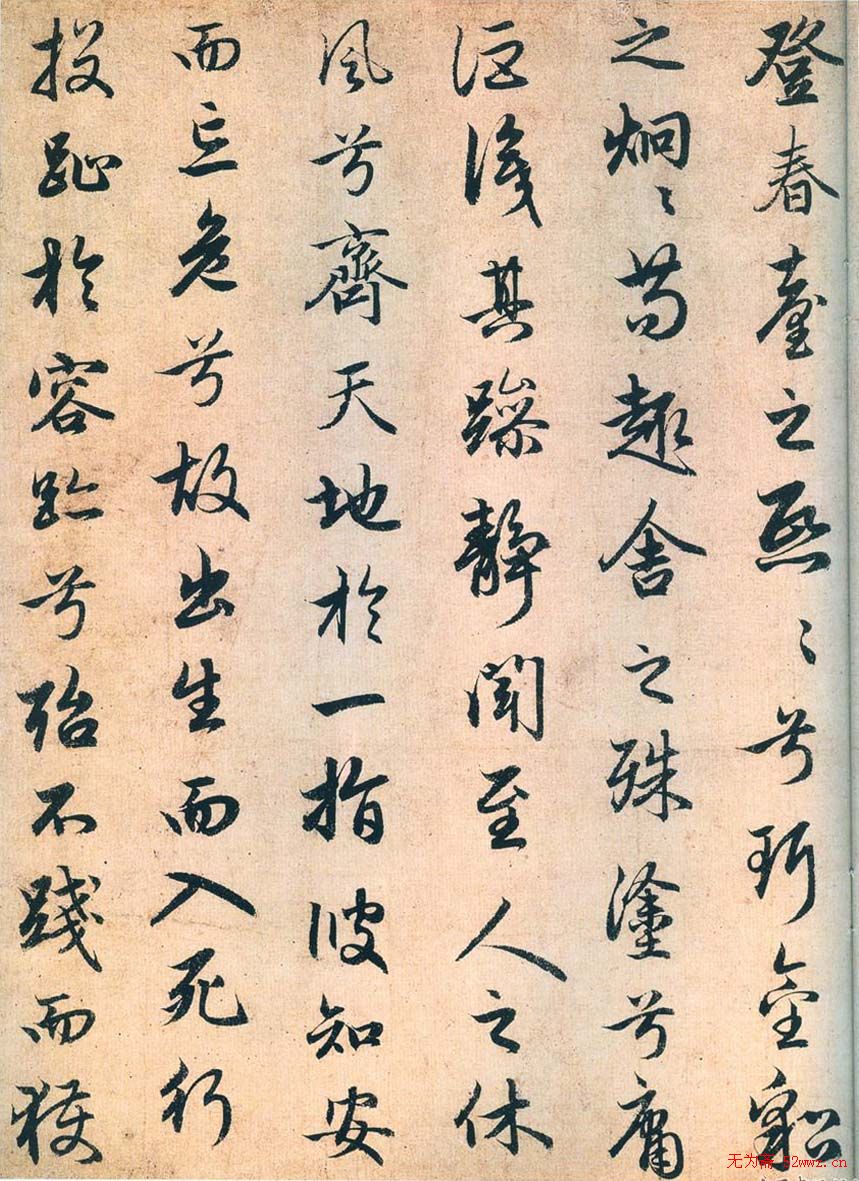 登春臺之熙〻兮珥金貂
之炯〻苟趣舍之殊塗兮庸
詎識其躁靜聞至人之休
風兮齊天地於一指彼知安
而忘危兮故出生而入死行
投趾於容跡兮殆不踐而獲
无为斋 52wwz.cn